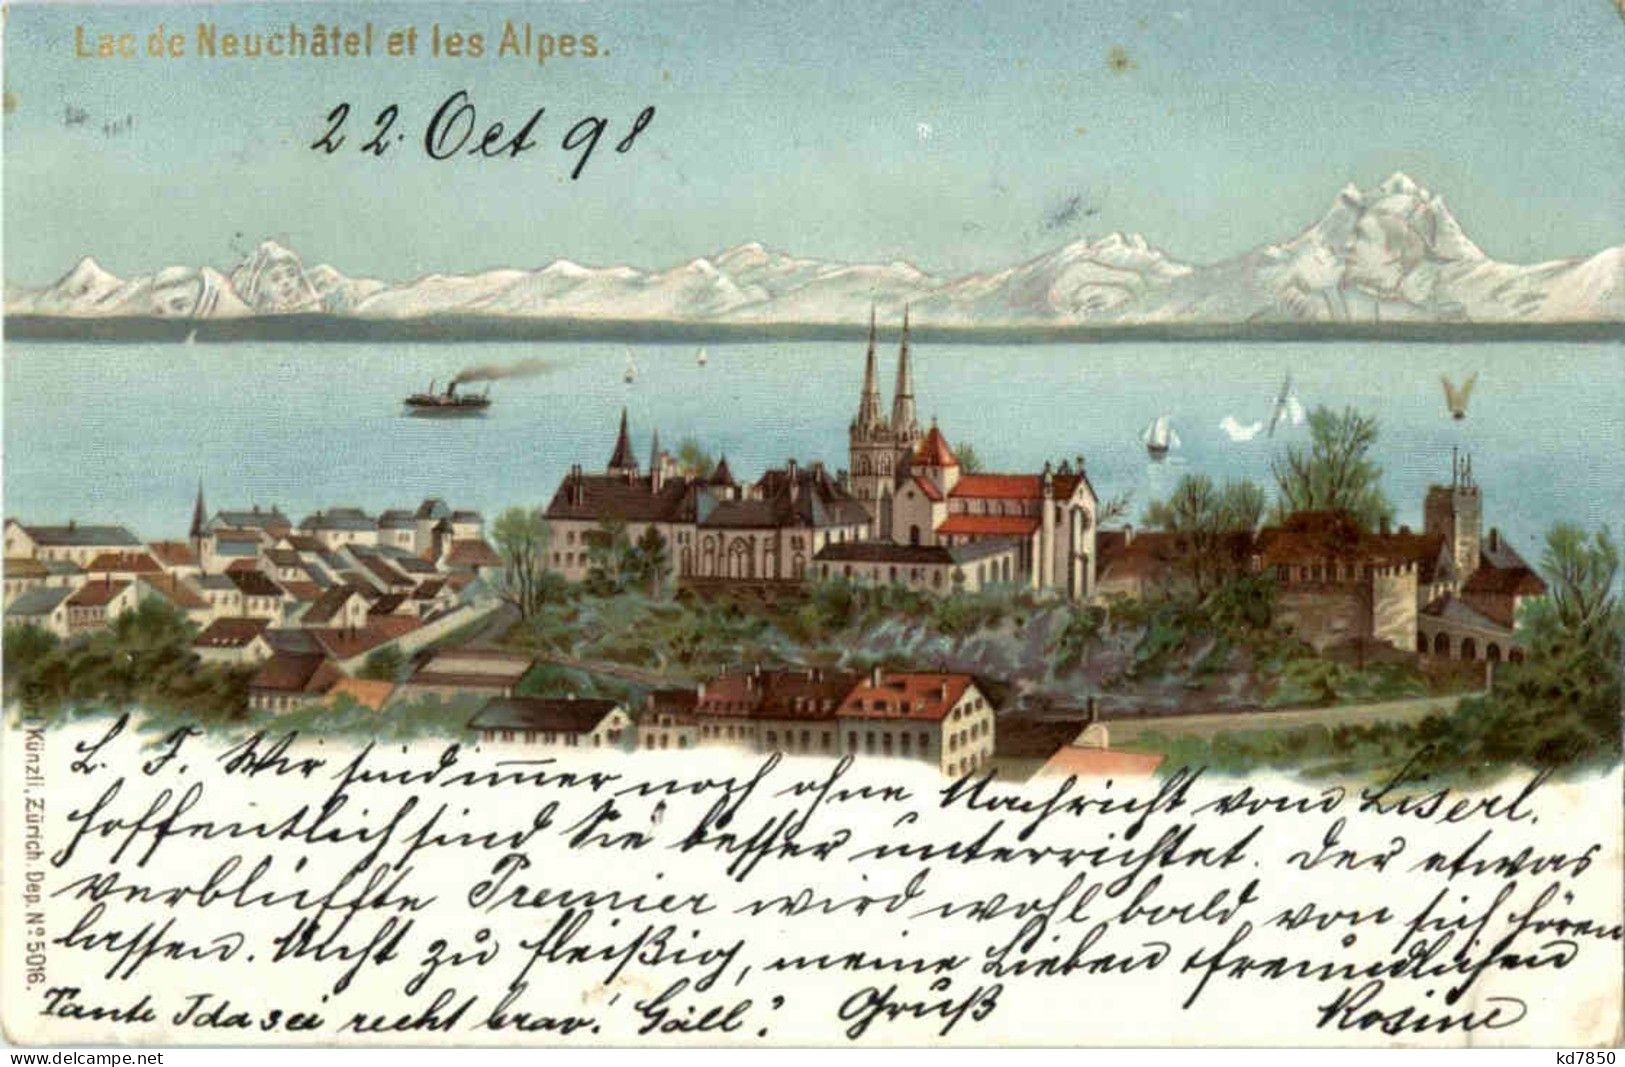 Lac de Neuchâtel et les Alpes.
22. Oct 98
L. F. Wir sind immer noch ohne Nachricht vom Liserl.
hoffentlich sind Sie besser unterrichtet. Der etwas
verblüffte Premier wird wohl bald von sich hören
lassen. Nicht zu fleißig, meine Lieben freundlichen
Tante Ida sei recht brav! Gäll? Gruß Rosine
Carl Künzli, Zürich. Dep. Nº 5016.
kd7850